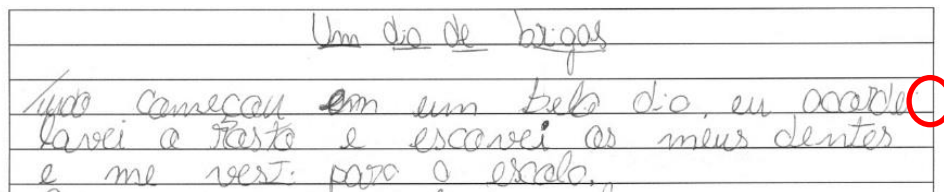 Um dia de brigas
Tudo começou em um belo dia, eu acordei
lavei o rosto e escovei os meus dentes
e me vesti para a escola.